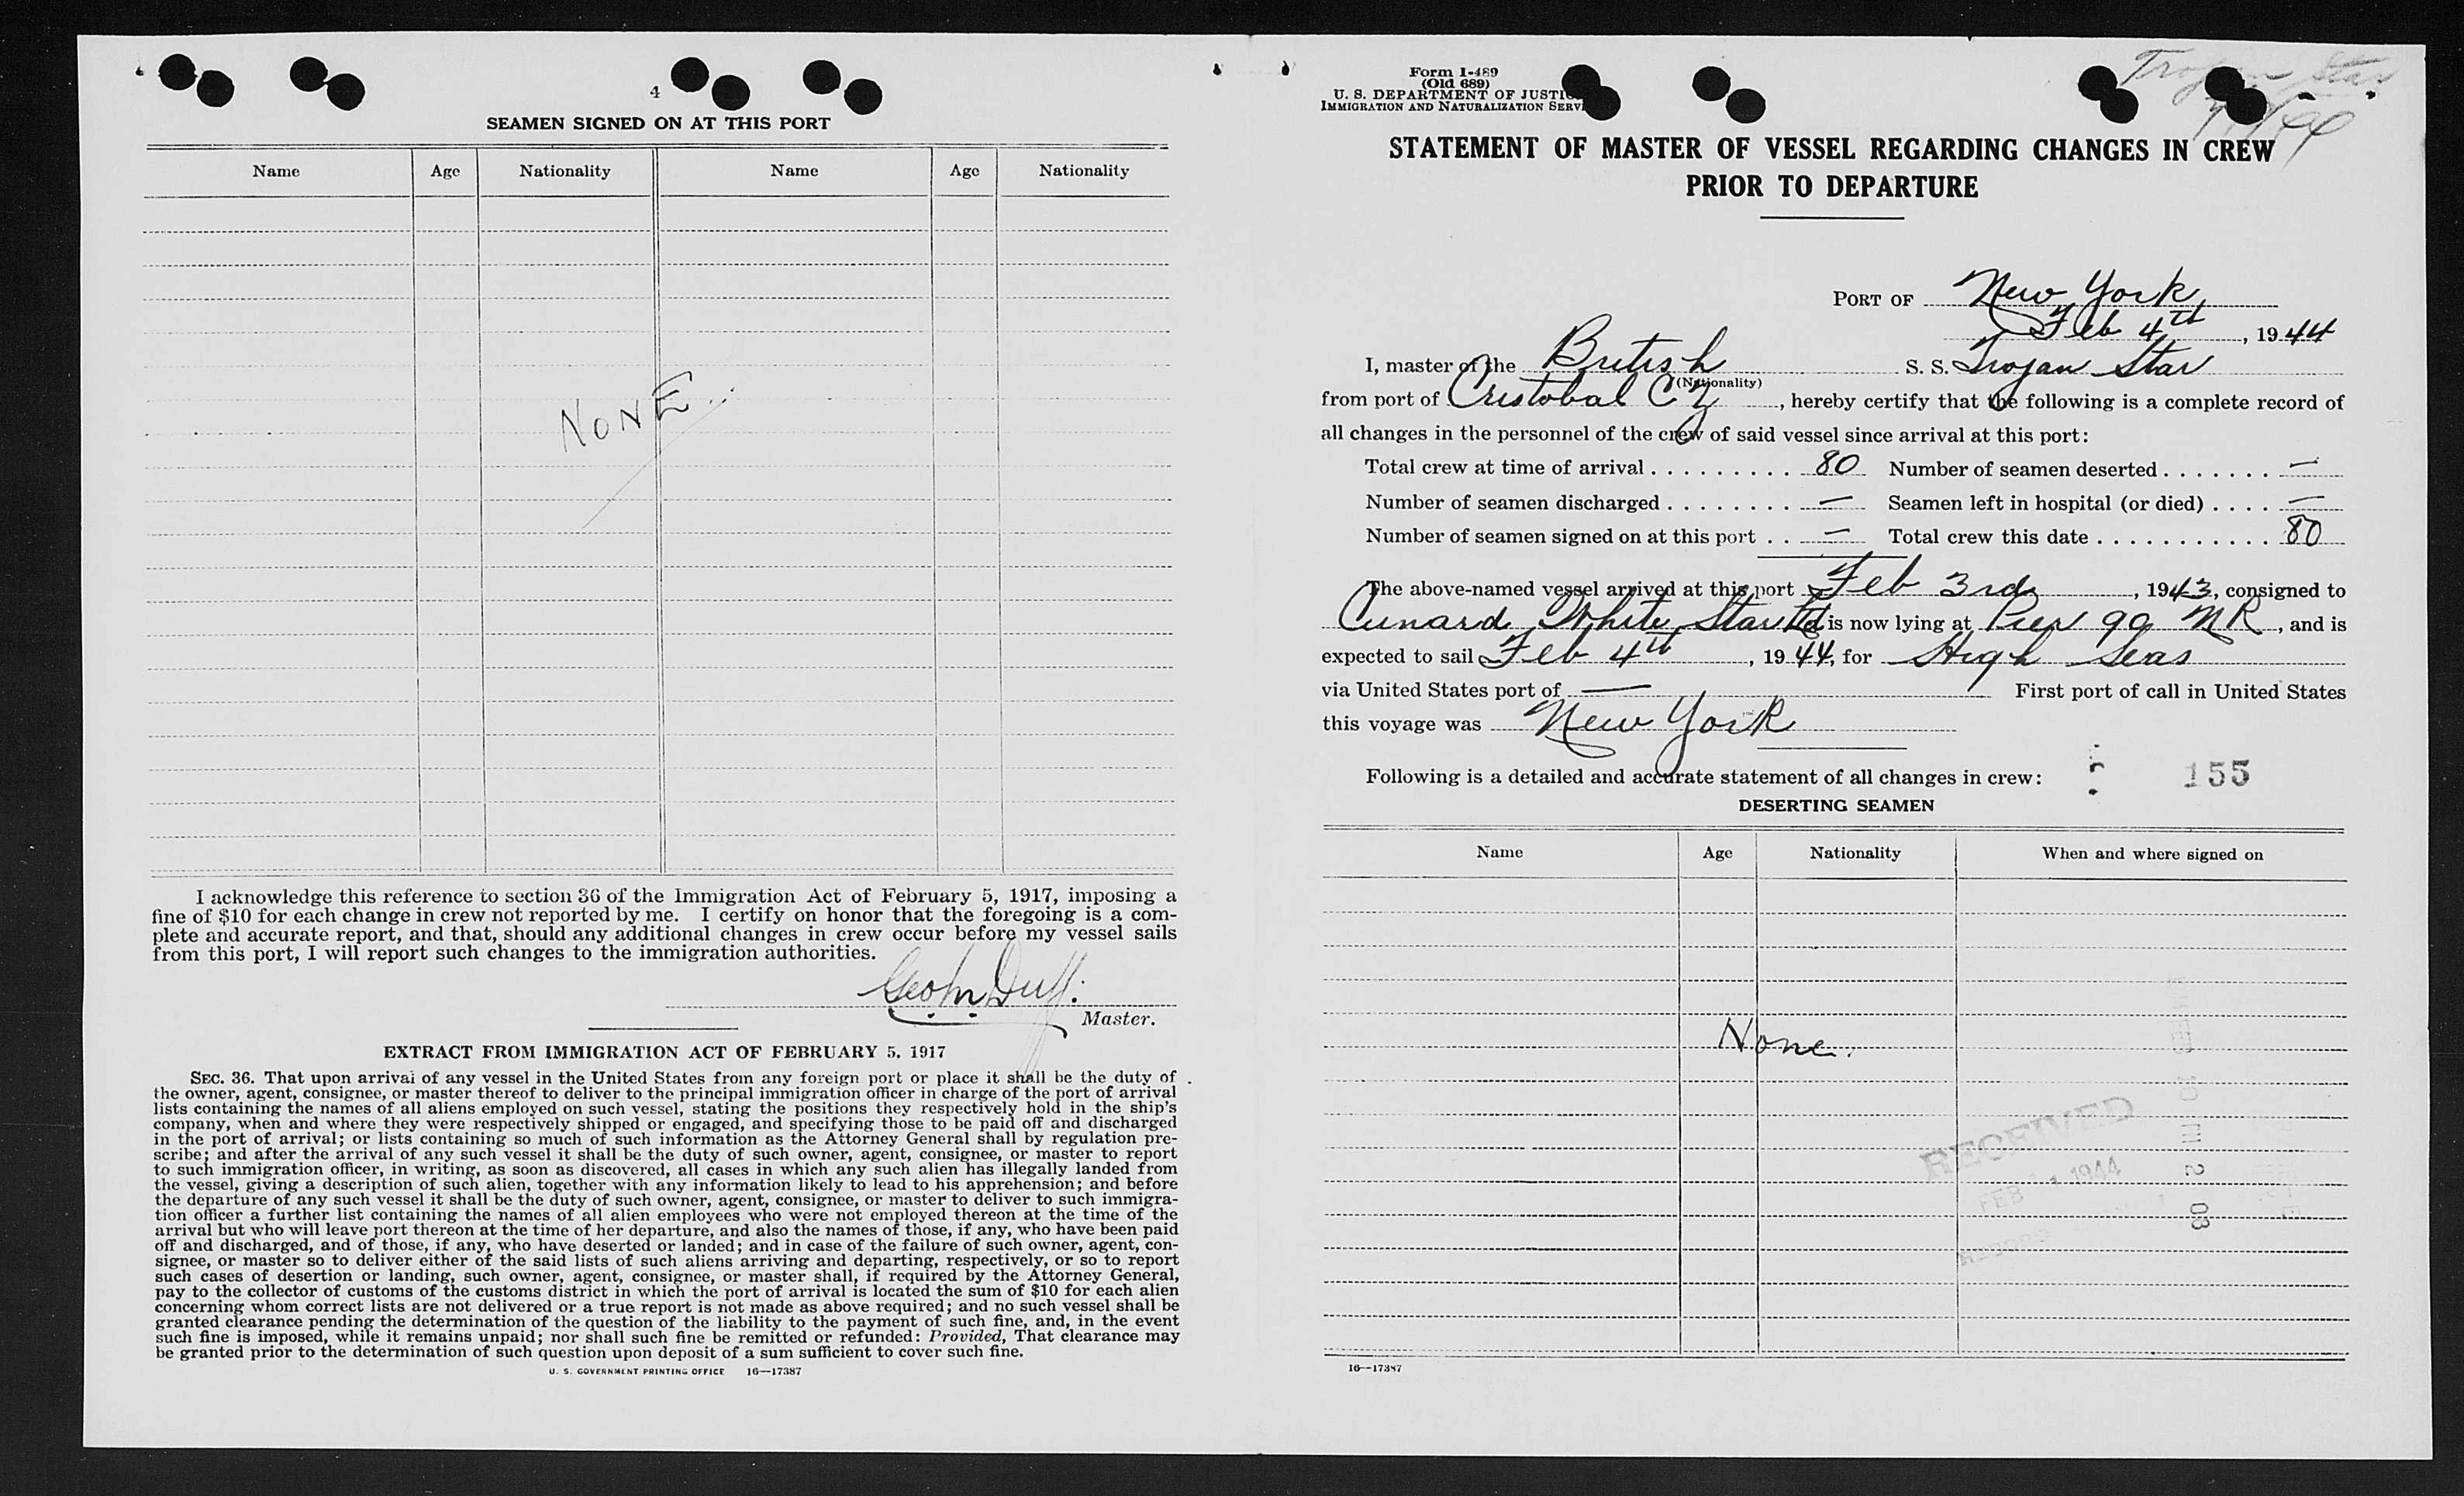 4
SEAMEN SIGNED ON AT THIS PORT
Name Age Nationality Name Age Nationality
NONE..
I acknowledge this reference to section 36 of the Immigration Act of February 5, 1917, imposing a
fine of $10 for each change in crew not reported by me. I certify on honor that the foregoing is a com-
plete and accurate report, and that, should any additional changes in crew occur before my vessel sails
from this port, I will report such changes to the immigration authorities.
Duff.
Master.
EXTRACT FROM IMMIGRATION ACT OF FEBRUARY 5, 1917
SEC. 36. That upon arrival of any vessel in the United States from any foreign port or place it shall be the duty of
the owner, agent, consignee, or master thereof to deliver to the principal immigration officer in charge of the port of arrival
lists containing the names of all aliens employed on such vessel, stating the positions they respectively hold in the ship's
company, when and where they were respectively shipped or engaged, and specifying those to be paid off and discharged
in the port of arrival; or lists containing so much of such information as the Attorney General shall by regulation pre-
scribe; and after the arrival of any such vessel it shall be the duty of such owner, agent, consignee, or master to report
to such immigration officer, in writing, as soon as discovered, all cases in which any such alien has illegally landed from
the vessel, giving a description of such alien, together with any information likely to lead to his apprehension; and before
the departure of any such vessel it shall be the duty of such owner, agent, consignee, or master to deliver to such immigra-
tion officer a further list containing the names of all alien employees who were not employed thereon at the time of the
arrival but who will leave port thereon at the time of her departure, and also the names of those, if any, who have been paid
off and discharged, and of those, if any, who have deserted or landed; and in case of the failure of such owner, agent, con-
signee, or master so to deliver either of the said lists of such aliens arriving and departing, respectively, or so to report
such cases of desertion or landing, such owner, agent, consignee, or master shall, if required by the Attorney General,
pay to the collector of customs of the customs district in which the port of arrival is located the sum of $10 for each alien
concerning whom correct lists are not delivered or a true report is not made as above required; and no such vessel shall be
granted clearance pending the determination of the question of the liability to the payment of such fine, and, in the event
such fine is imposed, while it remains unpaid; nor shall such fine be remitted or refunded: Provided, That clearance may
be granted prior to the determination of such question upon deposit of a sum sufficient to cover such fine.
U. S. GOVERNMENT PRINTING OFFICE 16—17387
Form I-489
(Old 689)
U. S. DEPARTMENT OF JUSTI
IMMIGRATION AND NATURALIZATION SERV
Trojan Star
STATEMENT OF MASTER OF VESSEL REGARDING CHANGES IN CREW
PRIOR TO DEPARTURE
PORT OF New York,
Feb 4th, 1944
I, master of the British S. S. Trojan Star
(Nationality)
from port of Cristobal C Z, hereby certify that the following is a complete record of
all changes in the personnel of the crew of said vessel since arrival at this port:
Total crew at time of arrival . . . . . . . . . . 80 Number of seamen deserted . . . . . . . —
Number of seamen discharged . . . . . . . . — Seamen left in hospital (or died) . . . . —
Number of seamen signed on at this port . . — Total crew this date . . . . . . . . . . . . 80
The above-named vessel arrived at this port Feb 3rd, 1943, consigned to
Cunard White Star Ltd is now lying at Pier 99 MR, and is
expected to sail Feb 4th, 1944, for High Seas
via United States port of — First port of call in United States
this voyage was New York
Following is a detailed and accurate statement of all changes in crew:
155
DESERTING SEAMEN
Name Age Nationality When and where signed on
None.
RECEIVED
FEB 1944
RECORD
10 2 03
16—17387